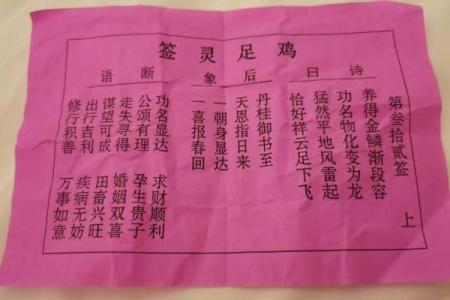 鸡足灵签
第叁拾贰签 上
诗曰
养得金鳞渐段容
功名物化变为龙
猛然平地风雷起
恰好祥云足下飞
后象
丹桂御书至
天恩指日来
一朝身显达
一喜报春回
断语
功名显达 求财顺利
公颂有理 孕生贵子
走失寻得 婚姻双喜
谋望可成 田畜兴旺
出行吉利 疾病无妨
修行积善 万事如意